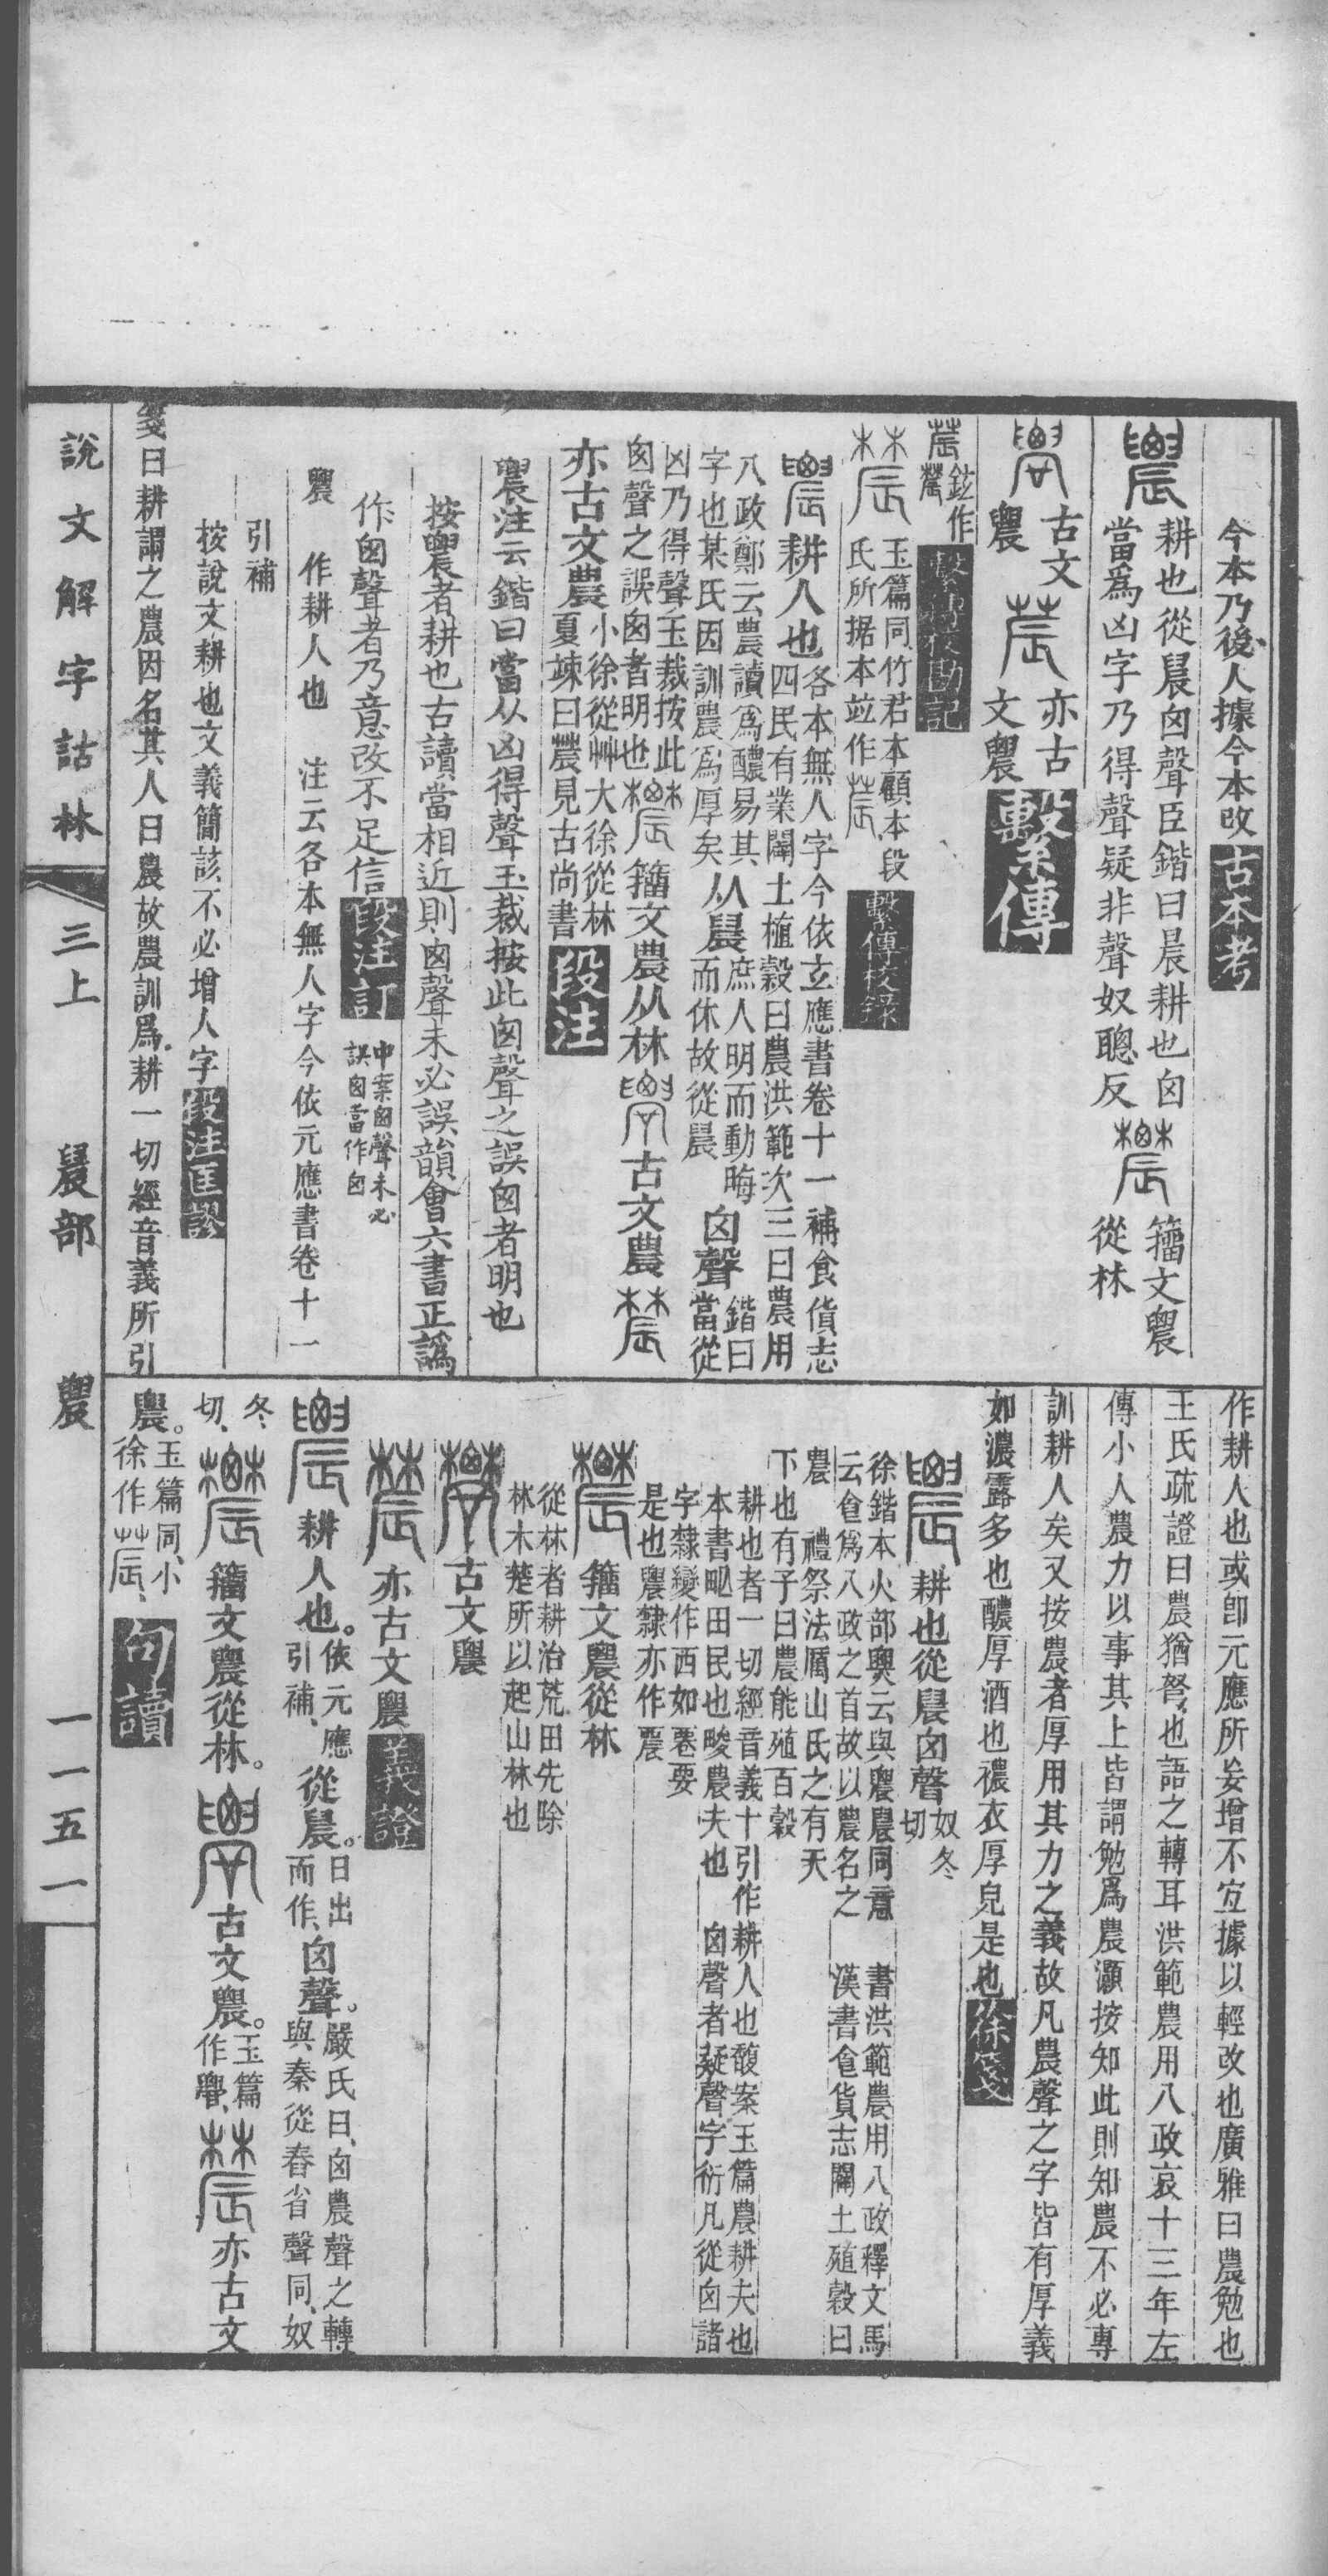 今本乃後人據今本改古本考
耕也從晨囟聲臣鍇曰晨耕也囟
當爲凶字乃得聲疑非聲奴聰反
籒文農
從林
古文
農
亦古
文農
繫傳
鉉作
繫傳校勘記
玉篇同竹君本顧本段
氏所据本竝作
繫傳校錄
耕人也
各本無人字今依玄應書卷十一補食貨志
四民有業闢土植穀曰農洪範次三曰農用
八政鄭云農讀爲醲易其
字也某氏因訓農爲厚矣
从晨
庶人明而動晦
而休故從晨
囟聲
鍇曰
當從
凶乃得聲玉裁按此
囟聲之誤囪者明也
籒文農从林
古文農
亦古文農
小徐從艸大徐從林
夏竦曰䢉見古尚書
段注
農注云鍇曰當从凶得聲玉裁按此囟聲之誤囪者明也
按農者耕也古讀當相近則囟聲未必誤韻會六書正譌
作囪聲者乃意改不足信段注訂
申案囟聲未必
誤囪當作囟
農　作耕人也　注云各本無人字今依元應書卷十一
引補
按說文耕也文義簡該不必增人字段注匡謬
箋曰耕謂之農因名其人曰農故農訓爲耕一切經音義所引
作耕人也或卽元應所妄增不宜據以輕改也廣雅曰農勉也
王氏疏證曰農猶努也語之轉耳洪範農用八政哀十三年左
傳小人農力以事其上皆謂勉爲農灝按知此則知農不必專
訓耕人矣又按農者厚用其力之義故凡農聲之字皆有厚義
如濃露多也醲厚酒也襛衣厚皃是也徐箋
耕也從晨囟聲
奴冬
切
徐鍇本火部爂云與農農同意　書洪範農用八政釋文馬
云食爲八政之首故以農名之　漢書食貨志闢土殖穀曰
農　禮祭法厲山氏之有天
下也有子曰農能殖百穀
耕也者一切經音義十引作耕人也馥案玉篇農耕夫也
本書甿田民也畯農夫也　囟聲者疑聲字衍凡從囟諸
字隸變作西如䙴要
是也農隸亦作䢉
籒文農從林
從林者耕治荒田先除
林木楚所以起山林也
古文農
亦古文農義證
耕人也。
依元應
引補、
從晨。
日出
而作、
囟聲。
嚴氏曰、囟農聲之轉、
與秦從舂省聲同、奴
冬
切、
籒文農從林。
古文農。
玉篇
作、
亦古文
農。
玉篇同、小
徐作、
句讀
說文解字詁林　三上　晨部　農　一一五一